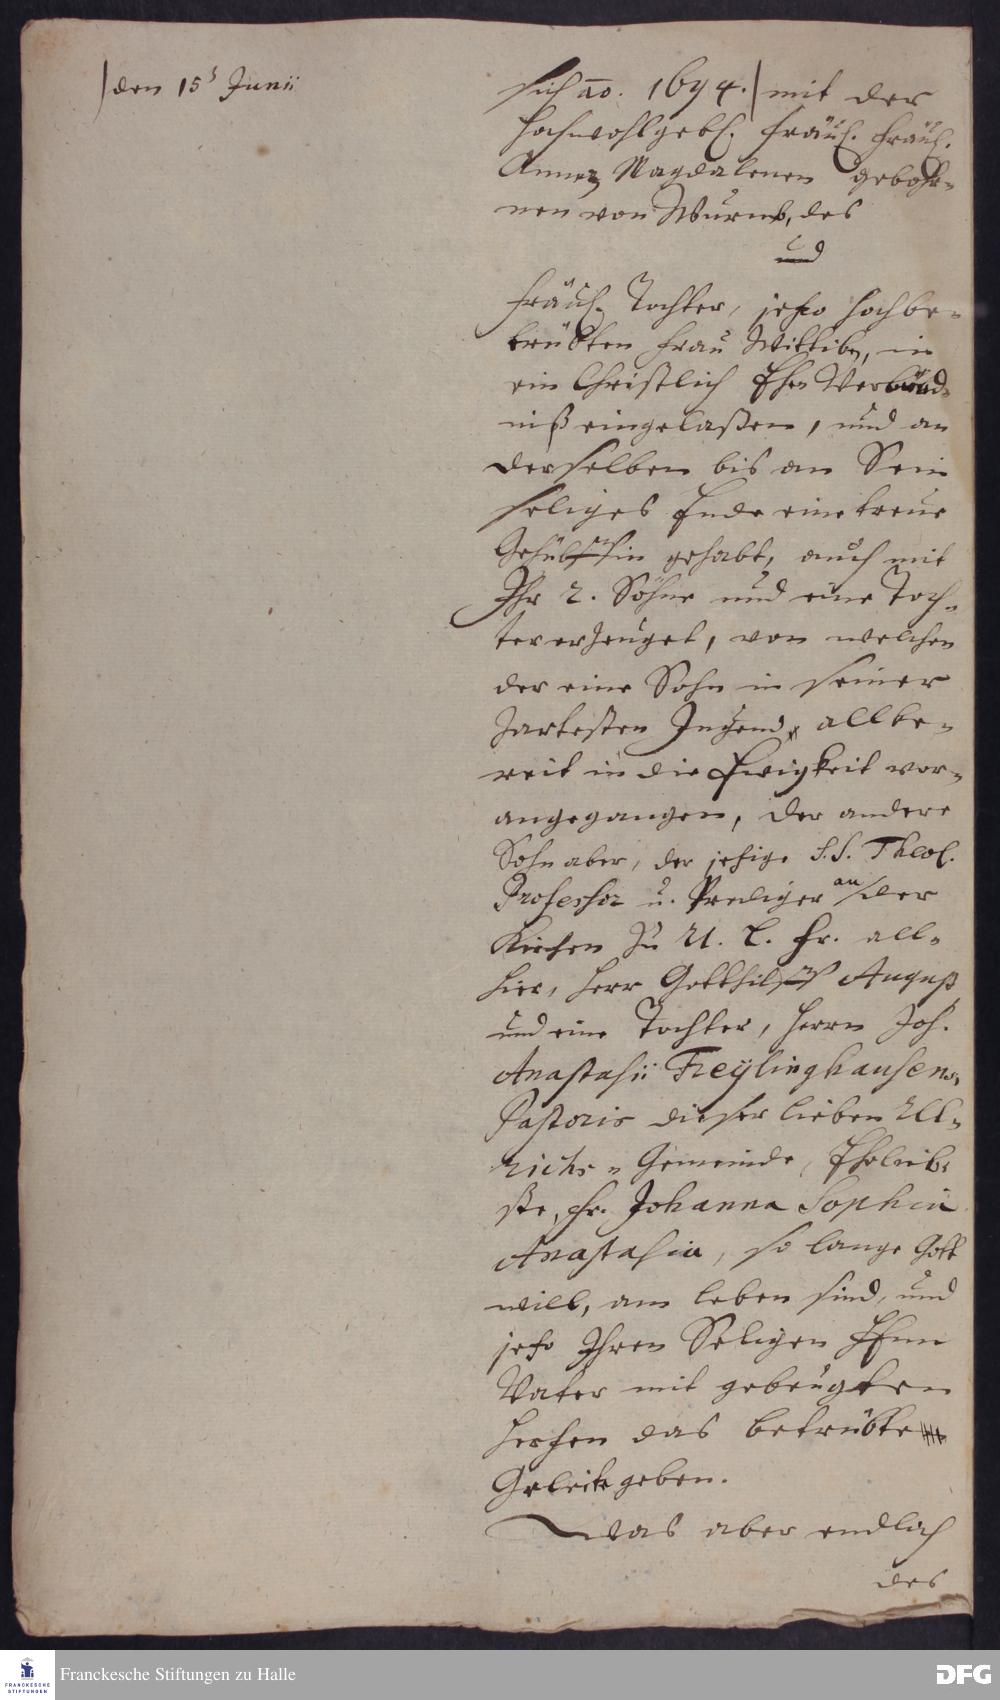 den 15 Junii
sich ao. 1694. mit der
Hochwohlgeb. Fräul. Fräul.
Annen Magdalenen gebohr-
nen von Wurmb, des
und
Fräul. Tochter, jetzo hochbe-
trübten Frau Wittibe, in
ein Christlich Ehe Verbünd-
niß eingelaßen, und an
derselben bis an Sein
seliges Ende eine treue
Gehülfin gehabt, auch mit
Ihr 2. Söhne und eine Toch-
ter erzeuget, von welchen
der eine Sohn in seiner
zartesten Jugend allbe-
reit in die Ewigkeit vor-
angegangen, der andere
Sohn aber, der jetzige S.S. Theol.
Professor u. Prediger an der
Kirchen zu U. L. Fr. all-
hier, Herr Gotthilf August
und eine Tochter, Herrn Joh.
Anastasii Freylinghausens,
Pastoris dieser lieben Ull-
richs-Gemeinde, Eheleib-
ste, Fr. Johanna Sophia
Anastasia, so lange Gott
will, am leben sind, und
jetzo Ihren Seligen Herrn
Vater mit gebeugten
Hertzen das betrübte
Geleite geben.
Was aber endlich
des
FRANCKESCHE
STIFTUNGEN
Franckesche Stiftungen zu Halle
DFG